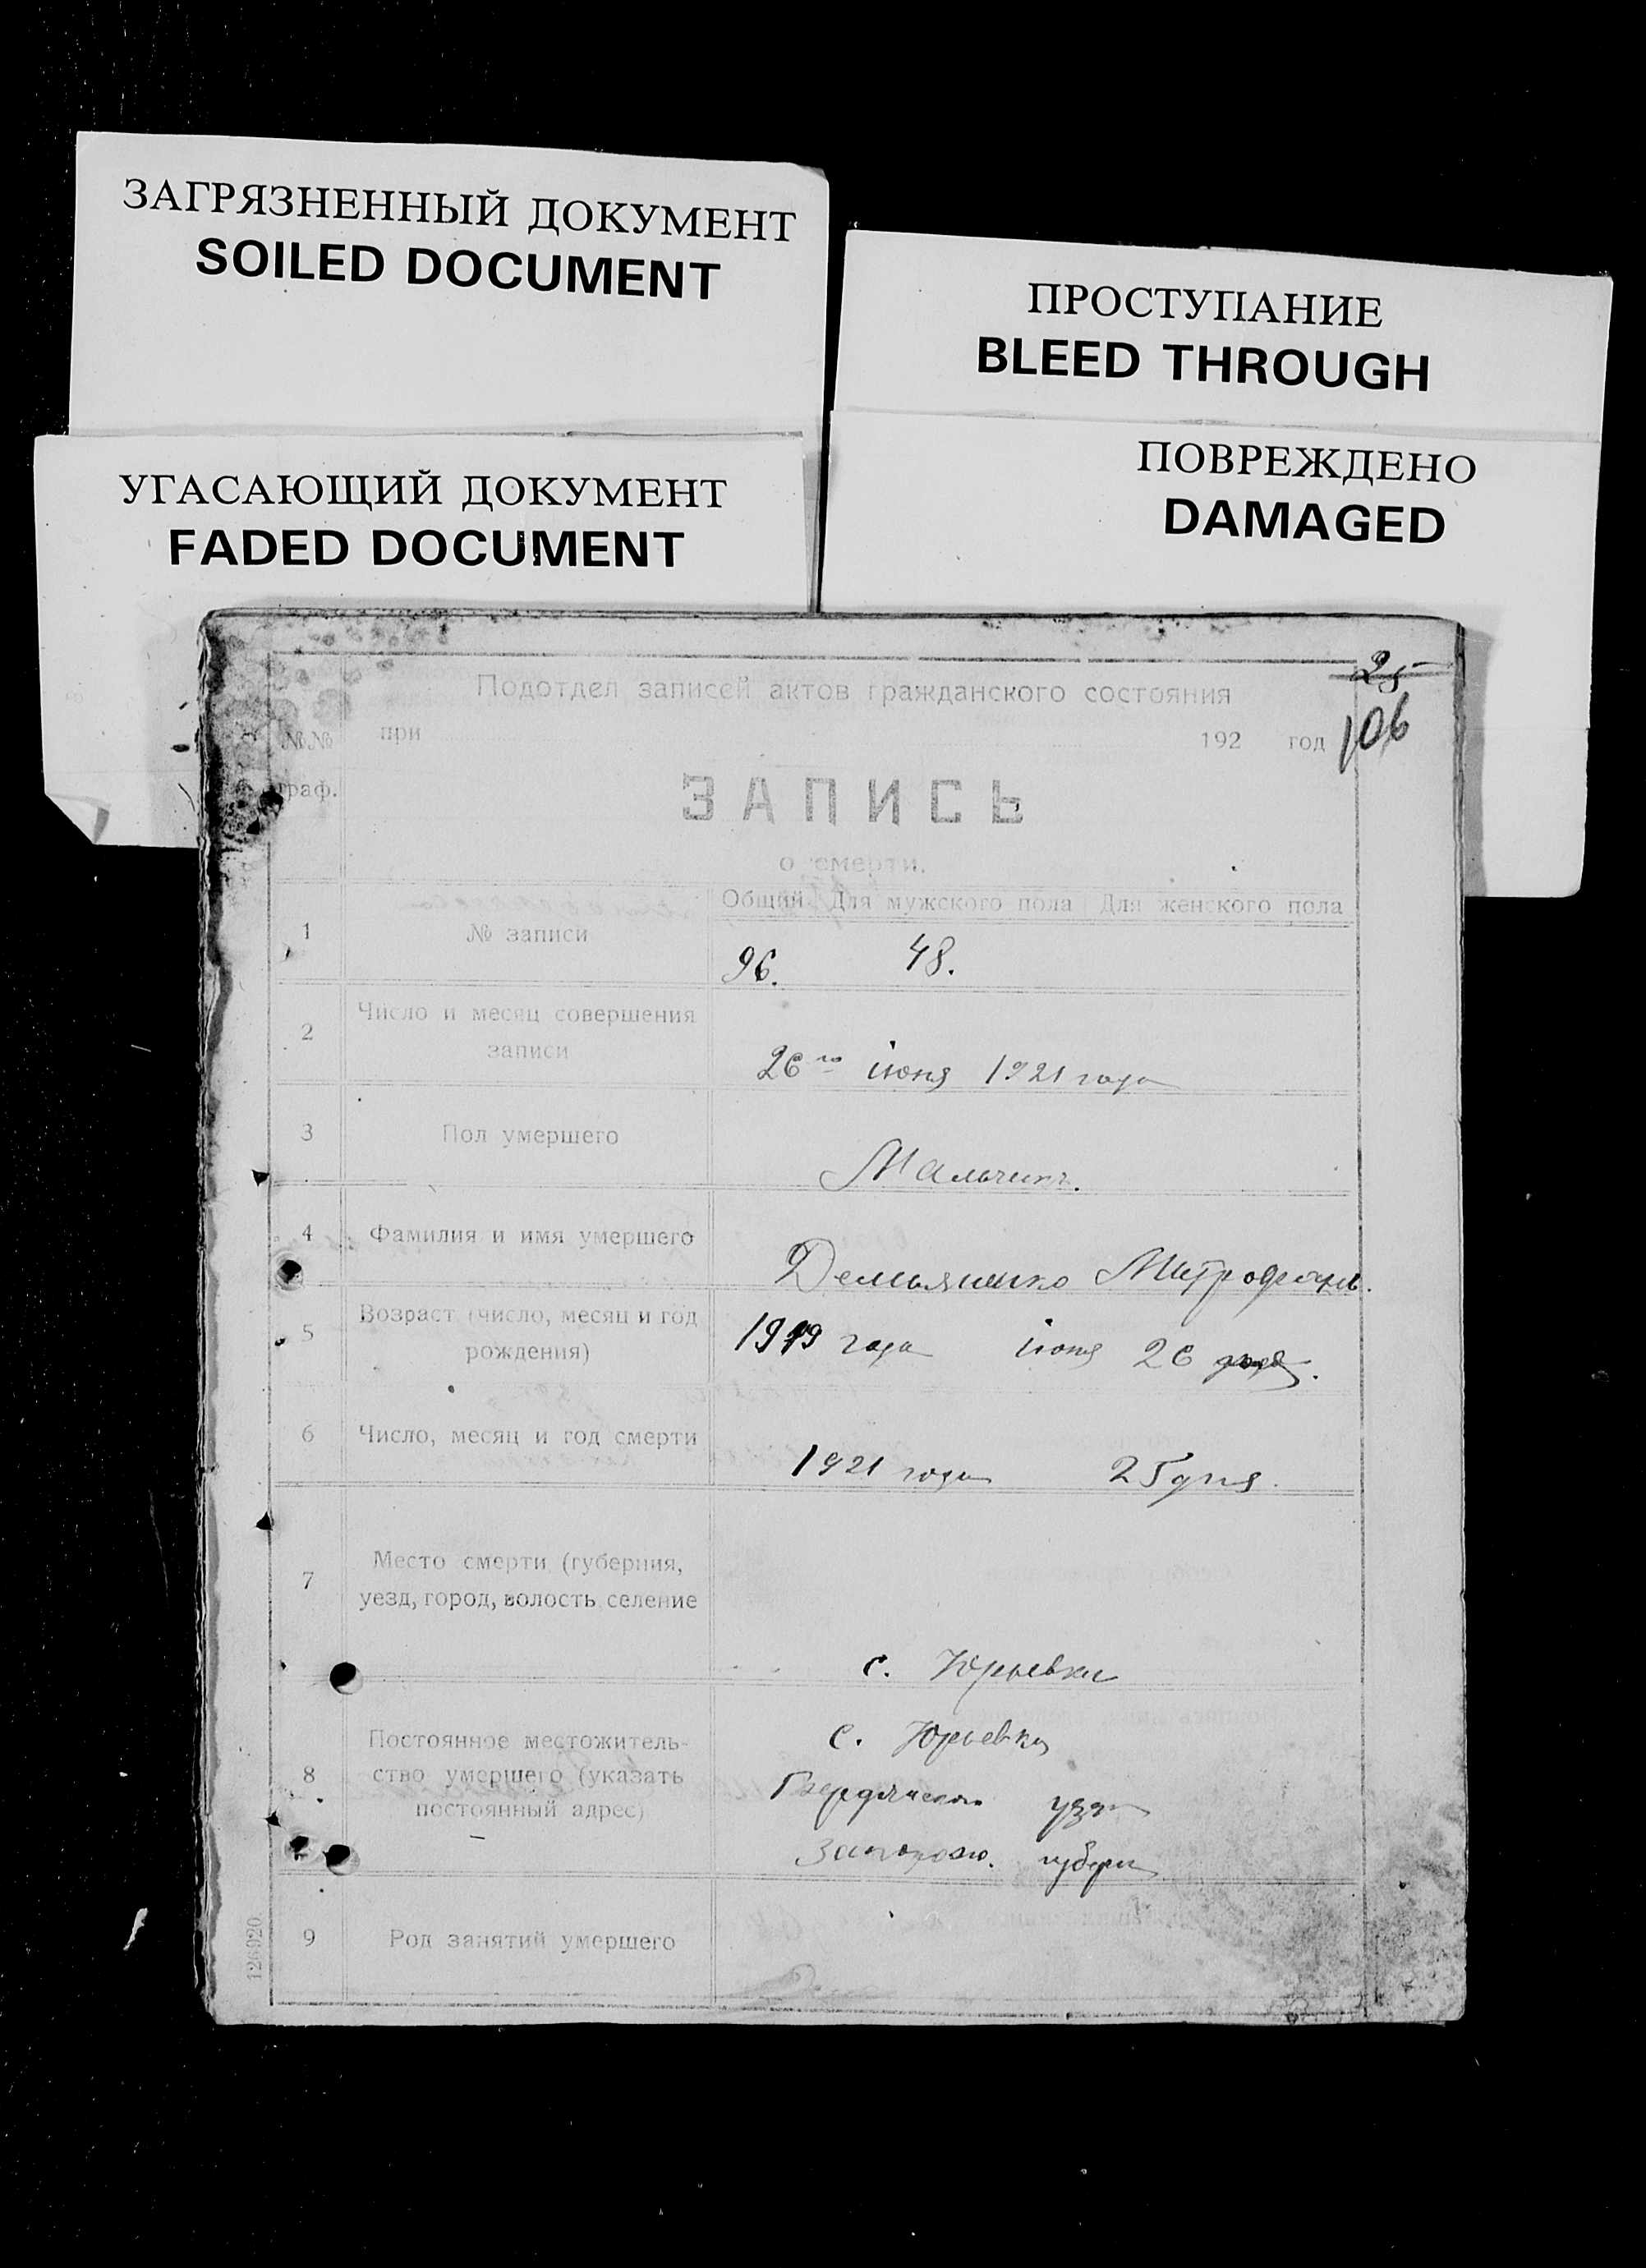 ЗАГРЯЗНЕННЫЙ ДОКУМЕНТ
SOILED DOCUMENT
ПРОСТУПАНИЕ
BLEED THROUGH
ПОВРЕЖДЕНО
DAMAGED
УГАСАЮЩИЙ ДОКУМЕНТ
FADED DOCUMENT
25
106
Подотдел записей актов гражданского состояния
№№ граф.
при 192 год
ЗАПИСЬ
о смерти.
Общий Для мужского пола Для женского пола
1 № записи
96. 48.
2 Число и месяц совершения
записи
26го июня 1921 года
3 Пол умершего
Мальчикъ.
4 Фамилия и имя умершего
Демьяненко Митрофанъ.
5 Возраст (число, месяц и год
рождения)
1919 года июня 26 дня.
6 Число, месяц и год смерти
1921 года 25 дня.
7 Место смерти (губерния,
уезд, город, волость селение
с. Юрьевки
8 Постоянное местожитель-
ство умершего (указать
постоянный адрес)
с. Юрьевка
Бердянского
Запорож. губерн
9 Род занятий умершего
126920